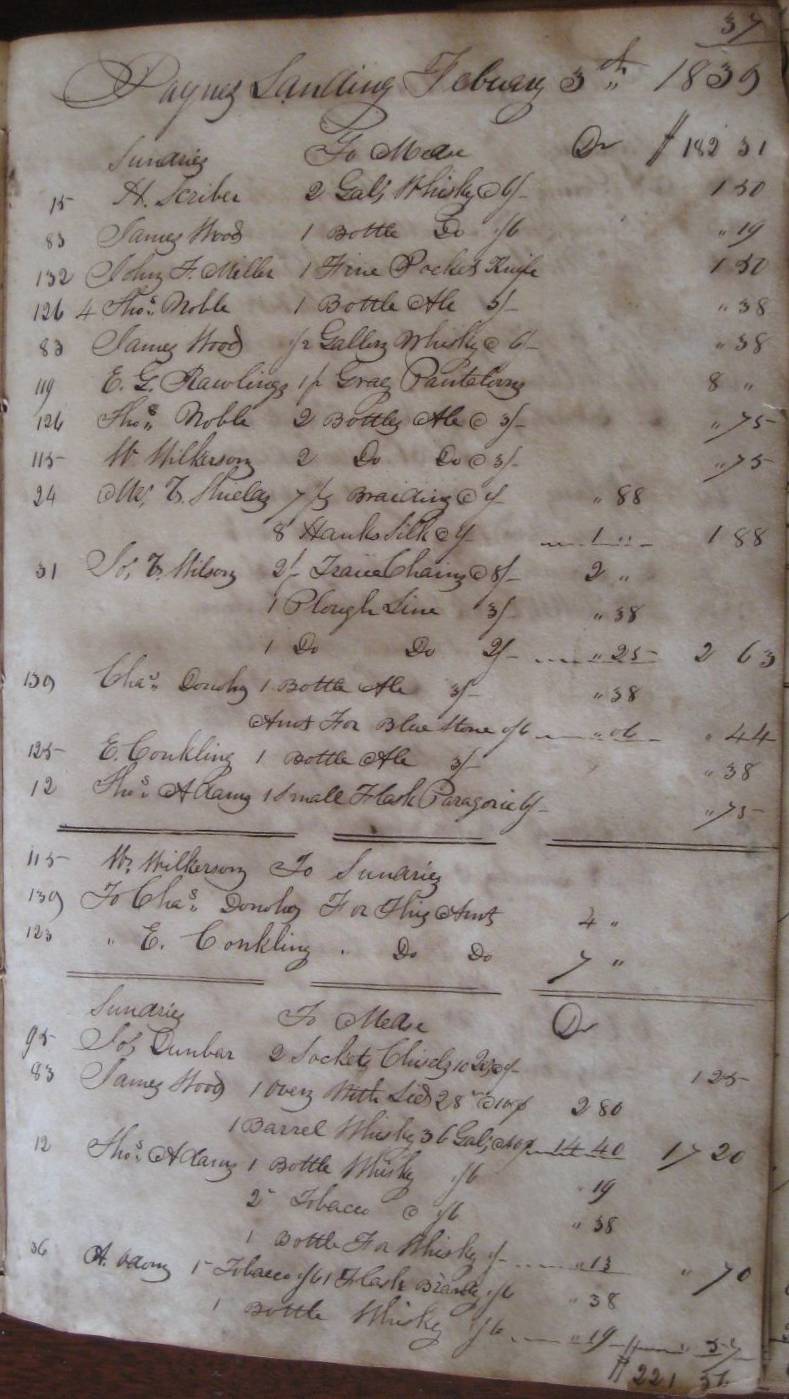 37
Paynes Landing Febuary 3th 1839
Sundries To Mdse Dr $ 182 31
15 H. Scriber 2 Gals Whisky @ 6/- 1 50
83 James Wood 1 Bottle Do 1/6 " 19
132 John F. Miller 1 Fine Pocket Knife 1 50
126 4 Thos. Noble 1 Bottle Ale 3/- " 38
83 James Wood 1/2 Gallon Whisky @ 6/- " 38
119 E. G. Rawlings 1 Gray Pantaloons 8 "
126 Thos. Noble 2 Bottles Ale @ 3/- " 75
115 W. Wilkerson 2 Do Do @ 3/- " 75
24 7 Braiding @ 1/- " 88
8 Hanks Silk @ 1/- 1 " 1 88
31 Wilson 2 Trace Chains @ 8/- 2 "
1 Plough Line 3/- " 38
1 Do Do 2/- " 25 2 63
139 Chas. Donohy 1 Bottle Ale 3/- " 38
Amt For Blue Stone /6 " 06 " 44
125 E. Conkling 1 Bottle Ale 3/- " 38
12 Thos. Adams 1 Small Flask Paragoric 6/- " 75
115 W. Wilkerson To Sundries
139 To Chas. Donohy For This Amt 4 "
125 " E. Conkling . Do Do 7 "
Sundries To Mdse Dr
95 Dunbar 2 Sockets Chisels 1 25
83 James Wood 1 Oven With Led 28 @ 10¢ 2 80
1 Barrel Whisky 36 Gals @ 40¢ 14 40 17 20
12 Thos. Adams 1 Bottle Whisky 1/6 " 19
2 Tobacco @ 1/6 " 38
1 Bottle For Whisky 1/- " 13 " 70
36 A. 1 Tobacco 1/6 1 Flask 1/6 " 38
1 Bottle Whisky 1/6 " 19 " 57
$ 221